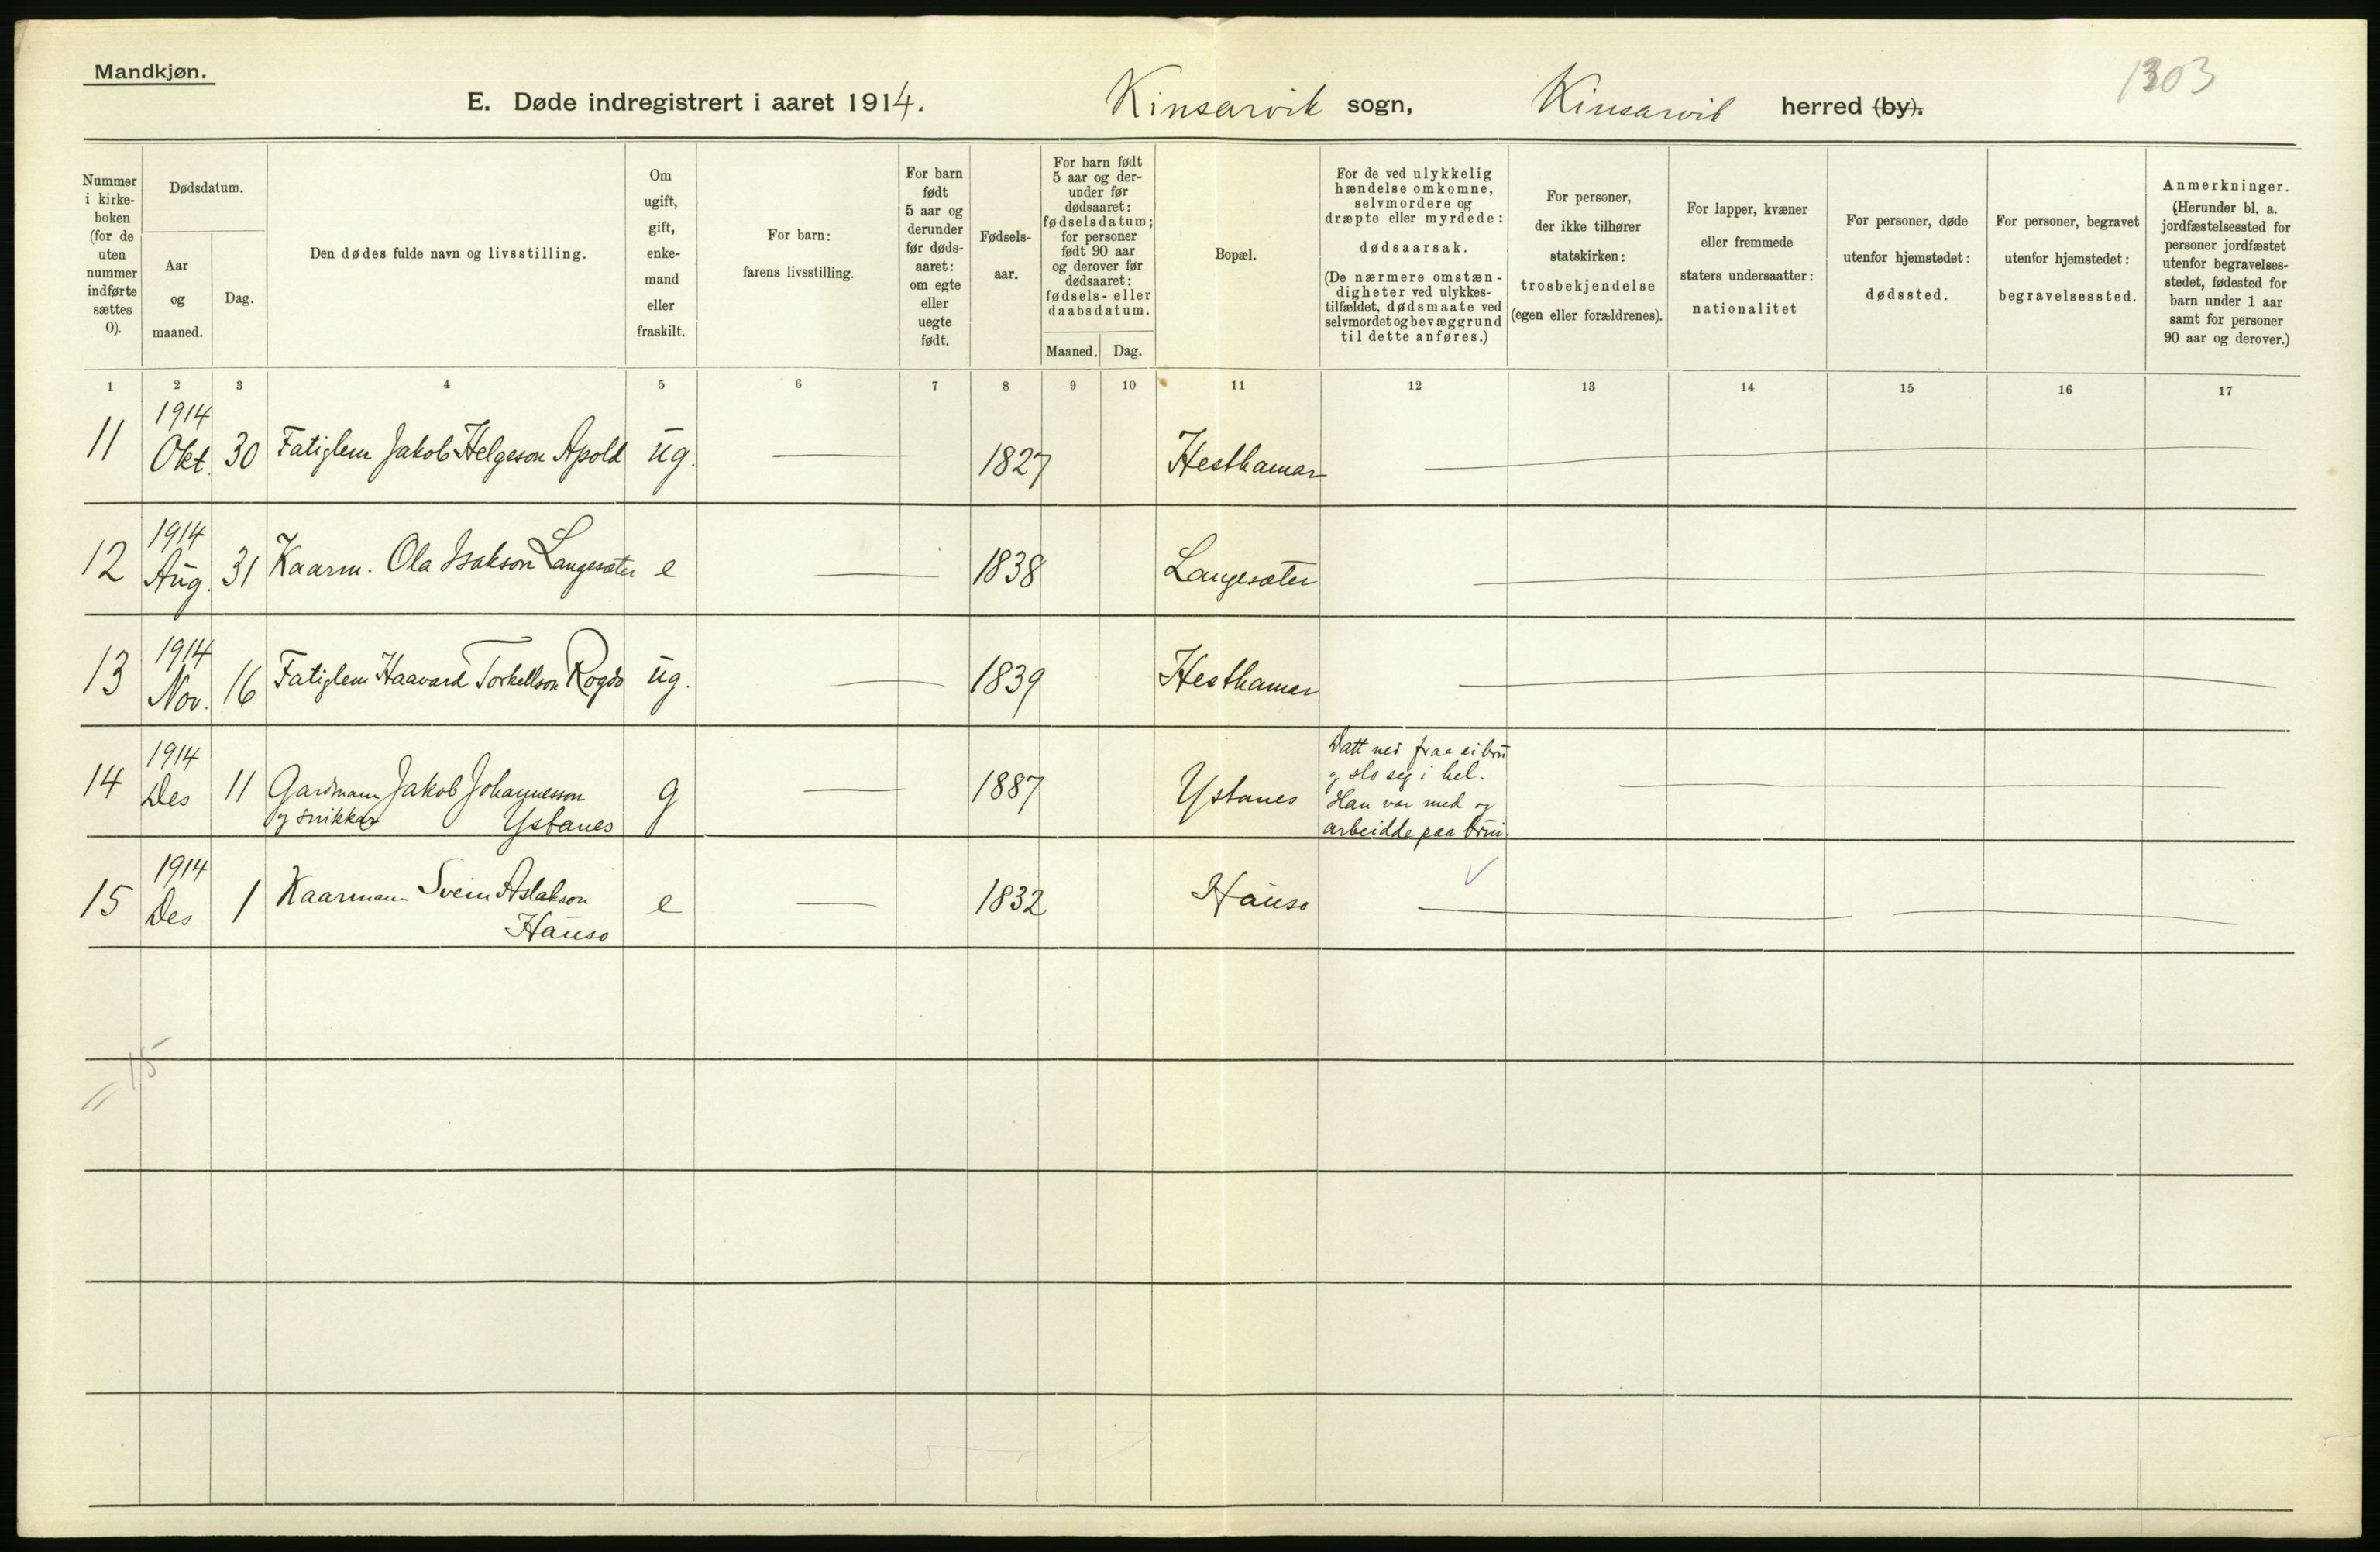 Mandkjøn.
1303
E. Døde indregistrert i aaret 1914. Kinsarvik sogn, Kinsarvik herred (by).
Nummer i kirke-boken (for de uten nummer indførte sættes 0).
Dødsdatum.
Aar og maaned.
Dag.
Den dødes fulde navn og livsstilling.
Om ugift, gift, enke-mand eller fraskilt.
For barn: farens livsstilling.
For barn født 5 aar og derunder før døds-aaret: om egte eller uegte født.
Fødsels-aar.
For barn født 5 aar og der-under før dødsaaret: fødselsdatum; for personer født 90 aar og derover før dødsaaret: fødsels- eller daabsdatum.
Maaned. Dag.
Bopæl.
For de ved ulykkelig hændelse omkomne, selvmordere og dræpte eller myrdede: dødsaarsak.
(De nærmere omstæn-digheter ved ulykkes-tilfældet, dødsmaate ved selvmordet og bevæggrund til dette anføres.)
For personer, der ikke tilhører statskirken: trosbekjendelse (egen eller forældrenes).
For lapper, kvæner eller fremmede staters undersaatter: nationalitet
For personer, døde utenfor hjemstedet: dødssted.
For personer, begravet utenfor hjemstedet: begravelsessted.
Anmerkninger.
(Herunder bl. a. jordfæstelsessted for personer jordfæstet utenfor begravelses-stedet, fødested for barn under 1 aar samt for personer 90 aar og derover.)
1 2 3 4 5 6 7 8 9 10 11 12 13 14 15 16 17
11 1914 Okt. 30 Fatiglem Jakob Helgeson Apold ug. — 1827 Hesthamar —
12 1914 Aug. 31 Kaarm. Ola Isakson Langesæter e — 1838 Langesæter —
13 1914 Nov. 16 Fatiglem Haavard Torkellson Rogdo ug. — 1839 Hesthamar —
14 1914 Des 11 Gardmann Jakob Johannesson g — 1887 Ystanes Datt ned fraa ei bru
og snikkar Ystanes og slo seg i hel.
Han var med og
arbeidde paa brui.
15 1914 Des 1 Kaarmann Svein Aslakson e — 1832 Hauso —
Hauso
15